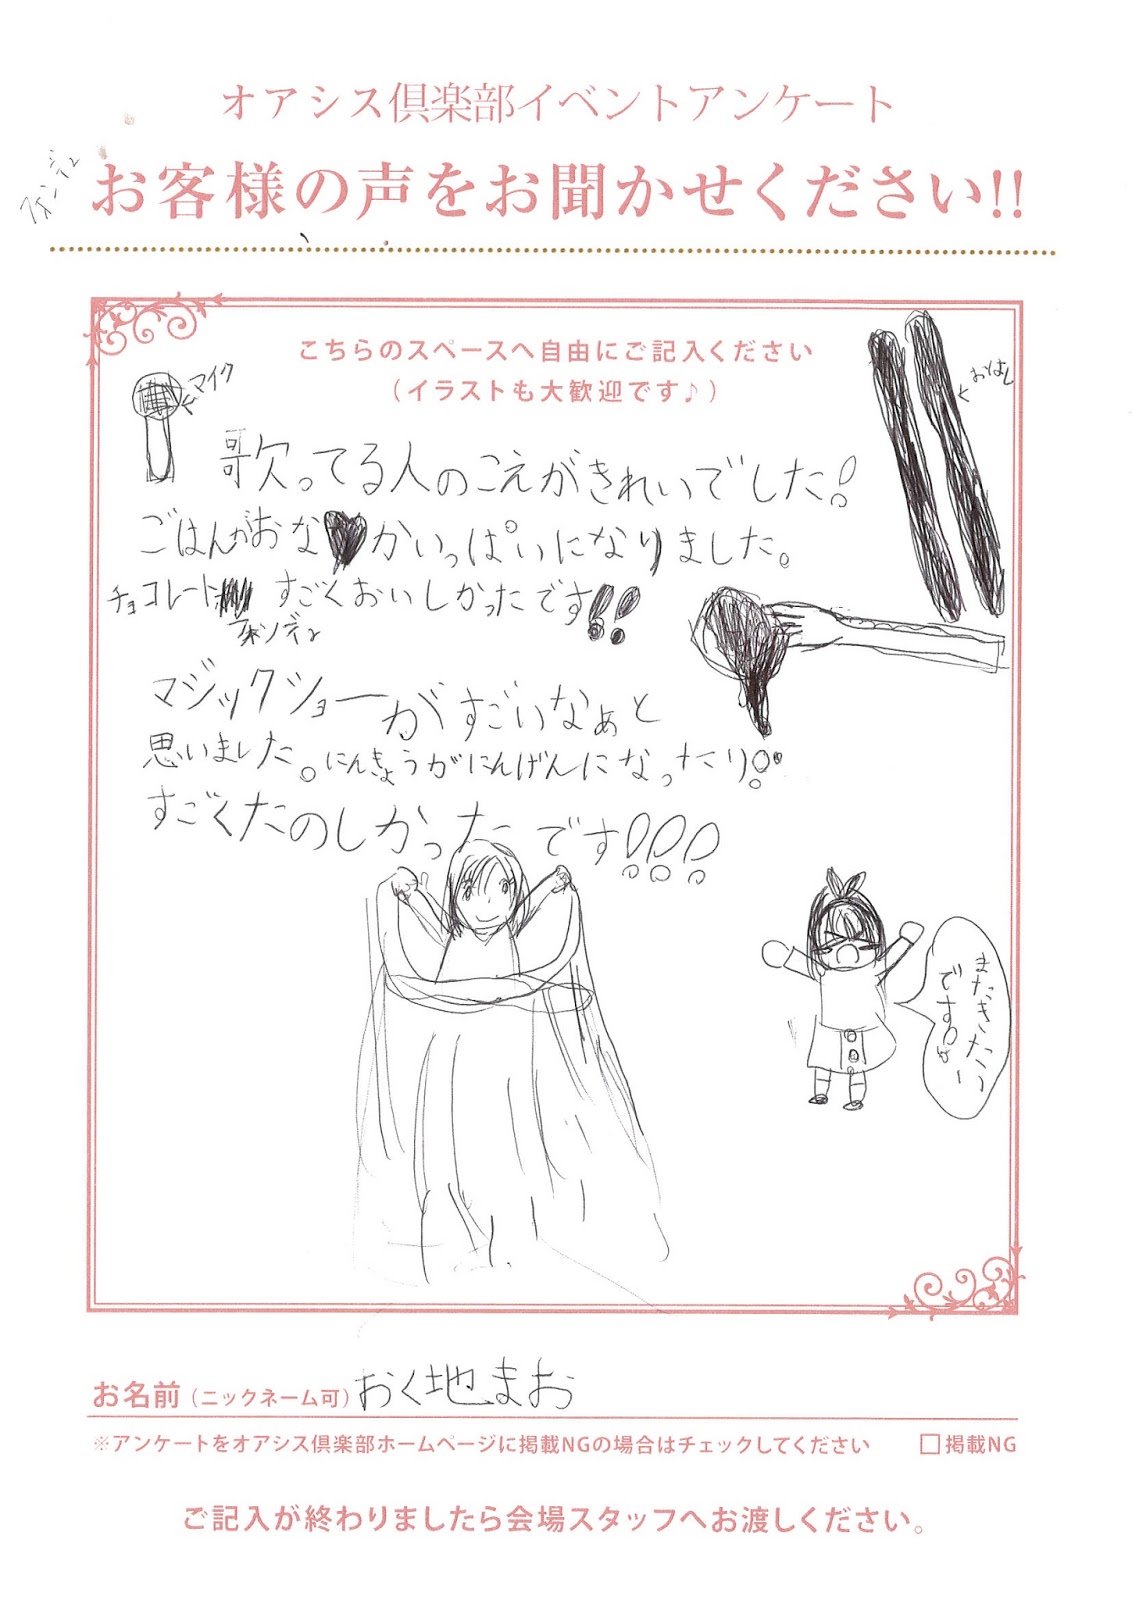 オアシス倶楽部イベントアンケート
フォンデュ
お客様の声をお聞かせください!!
こちらのスペースへ自由にご記入ください
(イラストも大歓迎です♪)
マイク
おはし
歌ってる人のこえがきれいでした!
ごはんがおな♥かいっぱいになりました。
チョコレート すごくおいしかったです!!
フォンデュ
マジックショーがすごいなぁと
思いました。にんぎょうがにんげんになったり!
すごくたのしかったです!!!
またきたい
です!!
お名前(ニックネーム可)おく地まお
※アンケートをオアシス倶楽部ホームページに掲載NGの場合はチェックしてください □掲載NG
ご記入が終わりましたら会場スタッフへお渡しください。